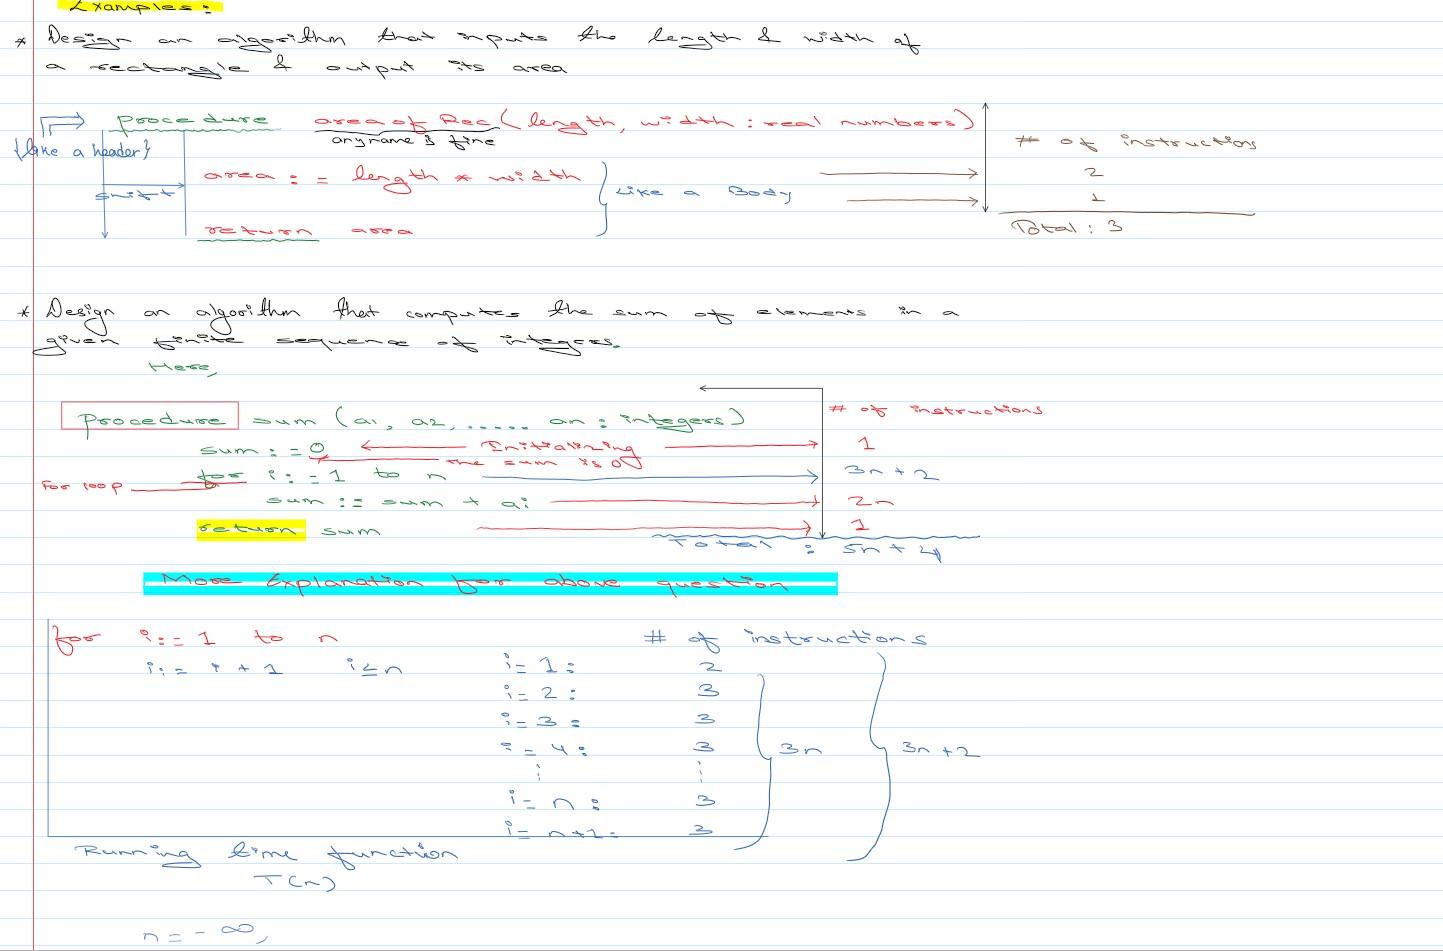 Examples:
* Design an algorithm that inputs the length & width of
a rectangle & output its area
procedure area of Rec (length, width : real numbers)
{like a header} any name is fine # of instructions
area := length * width 2
shift Like a Body
1
return area Total : 3
* Design an algorithm that computes the sum of elements in a
given finite sequence of integers.
Here,
Procedure sum (a1, a2, ..... an : integers) # of instructions
sum := 0 Initializing 1
the sum is 0
for i := 1 to n 3n + 2
For loop
sum := sum + ai 2n
return sum 1
Total : 5n + 4
More Explanation for above question
for i := 1 to n # of instructions
i := i + 1 i ≤ n i = 1 : 2
i = 2 : 3
i = 3 : 3
i = 4 : 3 3n 3n + 2
⋮ ⋮
i = n : 3
i = n+1 : 3
Running time function
T(n)
n = - ∞,